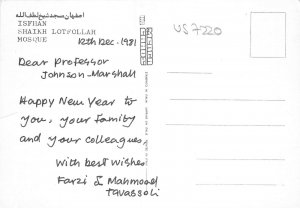 اصفهان مسجد شیخ لطف الله
ISFHAN
SHAIKH LOTFOLLAH
MOSQUE
12th Dec. 1981
US7220
Dear professor
Johnson-Marshall
Happy New Year to
you, your family
and your colleagues
with best wishes
Farzi & Mahmoud
Tavassoli